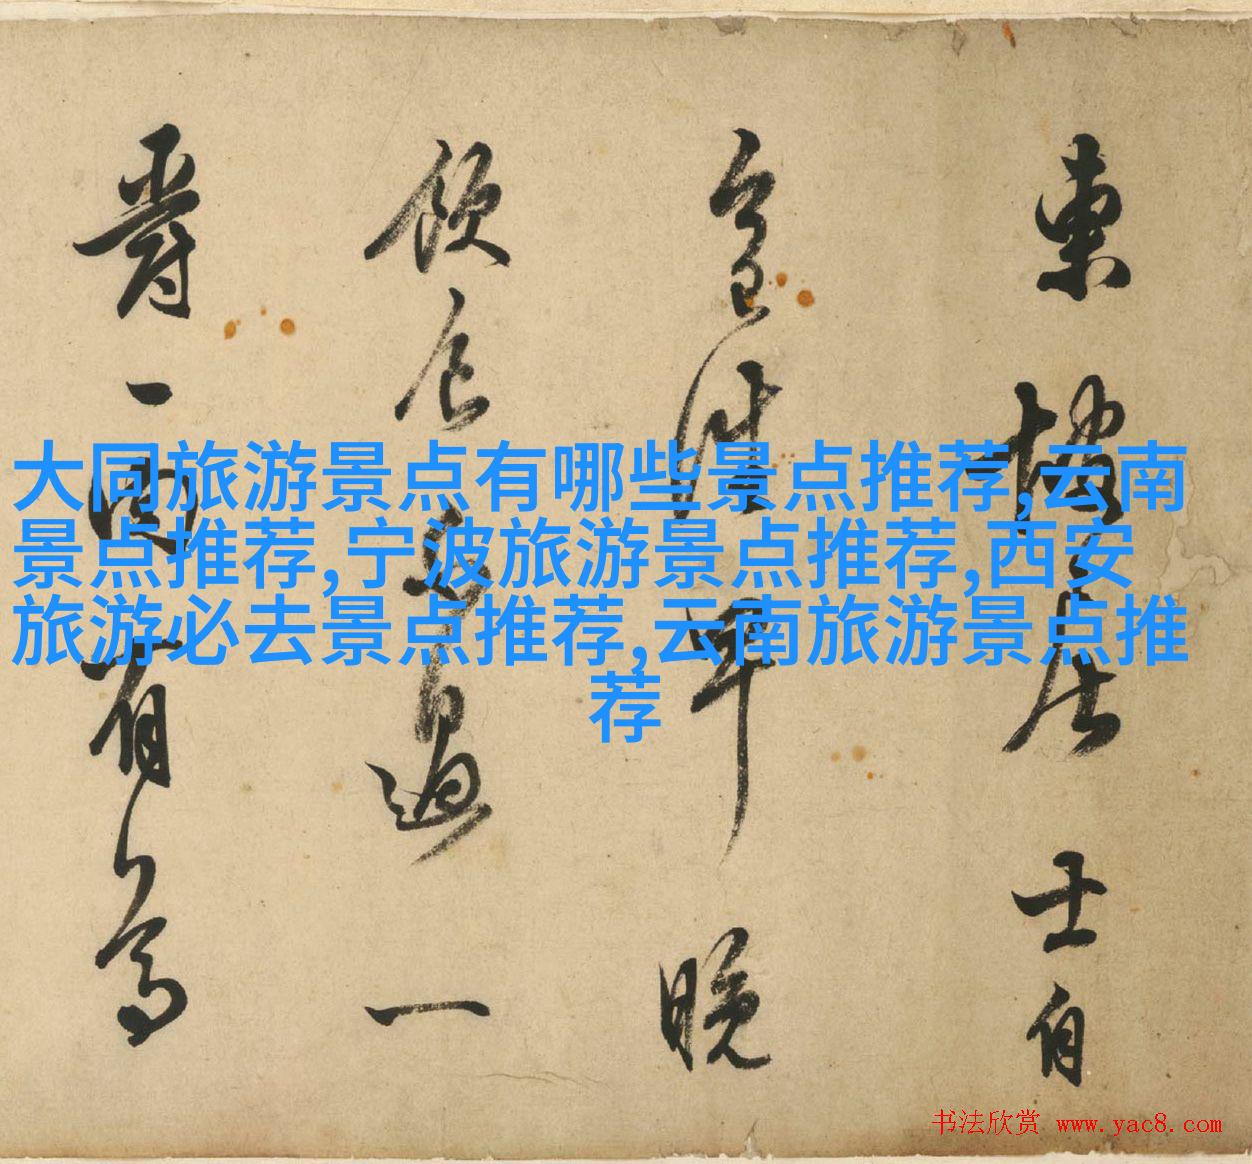 東坡居士自
今日往早晚
飲食不過一
爵一肉有
大同旅游景点有哪些景点推荐,云南
景点推荐,宁波旅游景点推荐,西安
旅游必去景点推荐,云南旅游景点推
荐
书法欣赏 www.yac8.com